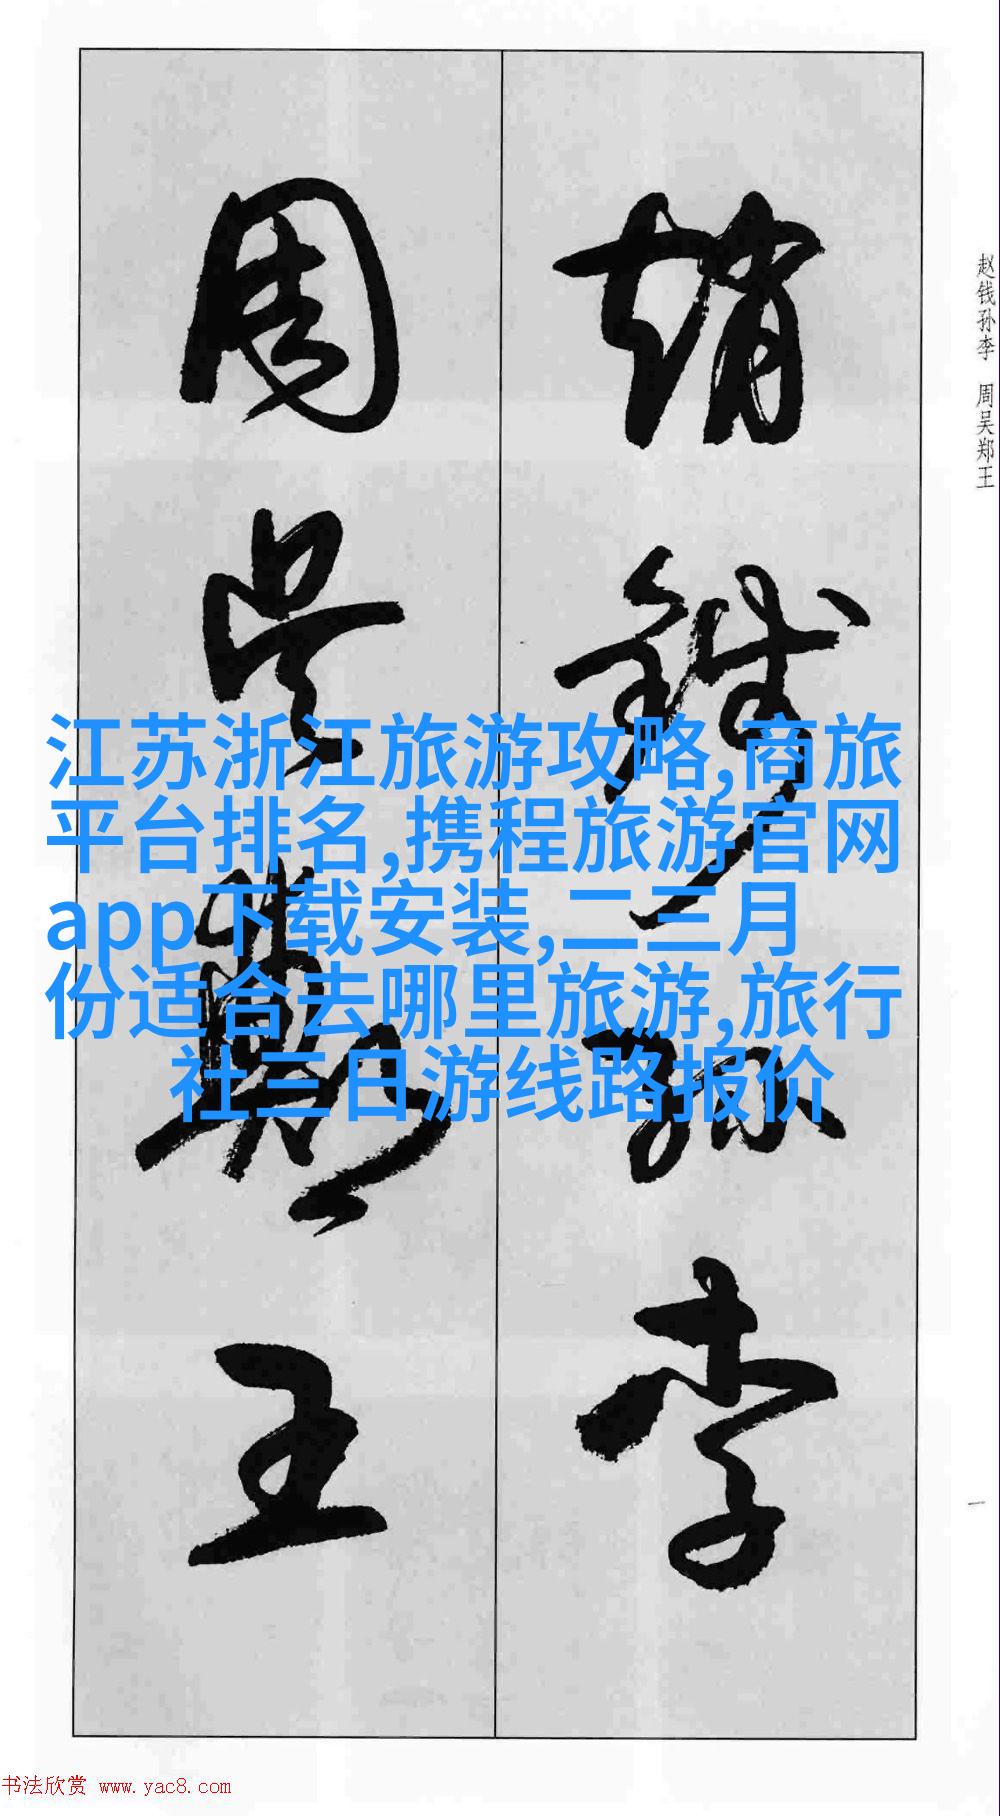 赵钱孙李 周吴郑王
趙錢孫李
周吴鄭王
江苏浙江旅游攻略,商旅
平台排名,携程旅游官网
app下载安装,二三月
份适合去哪里旅游,旅行
社三日游线路报价
一
书法欣赏 www.yac8.com